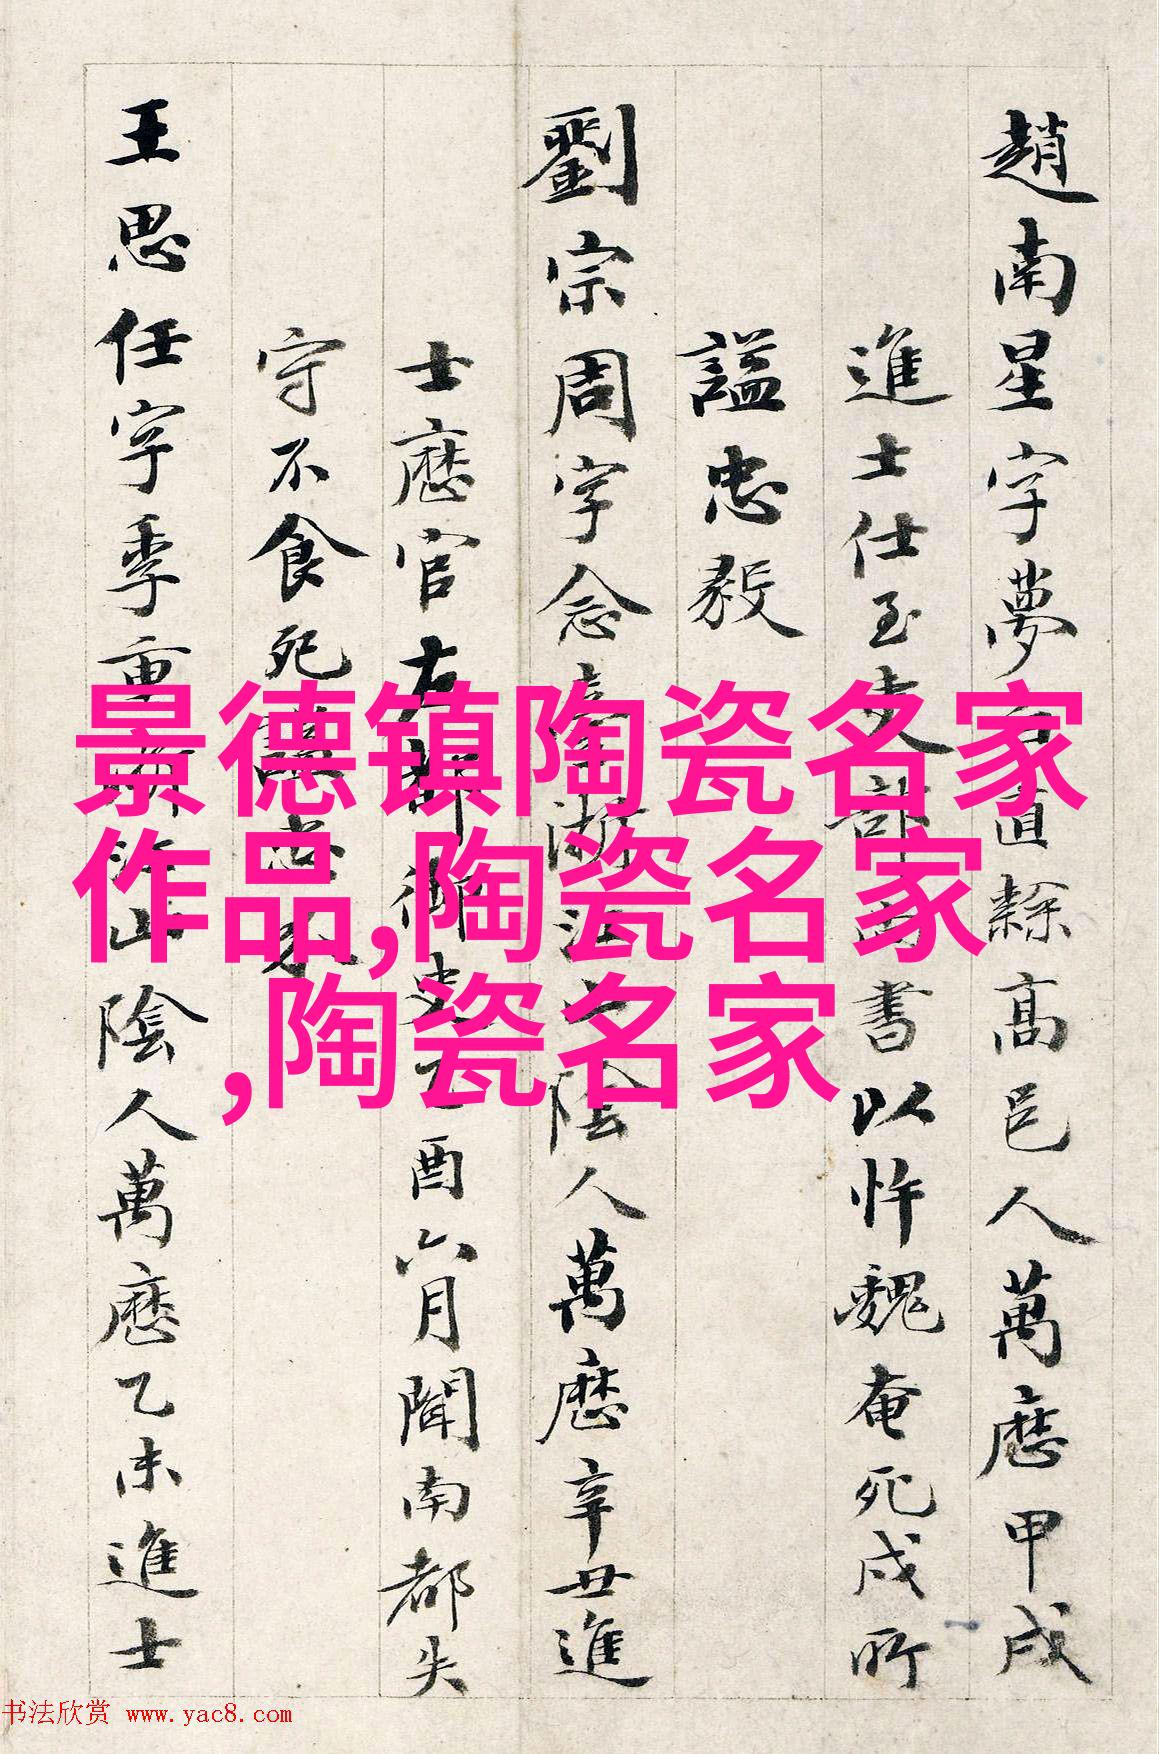 趙南星字夢白直隸高邑人萬曆甲戌
進士仕至吏部尚書以忤魏奄死戍所
謚忠毅
劉宗周字念臺浙江山陰人萬曆辛丑進
士歷官左都御史乙酉六月聞南都失
守不食死
王思任字季重浙江山陰人萬曆乙未進士
景德镇陶瓷名家
作品,陶瓷名家
,陶瓷名家
书法欣赏 www.yac8.com